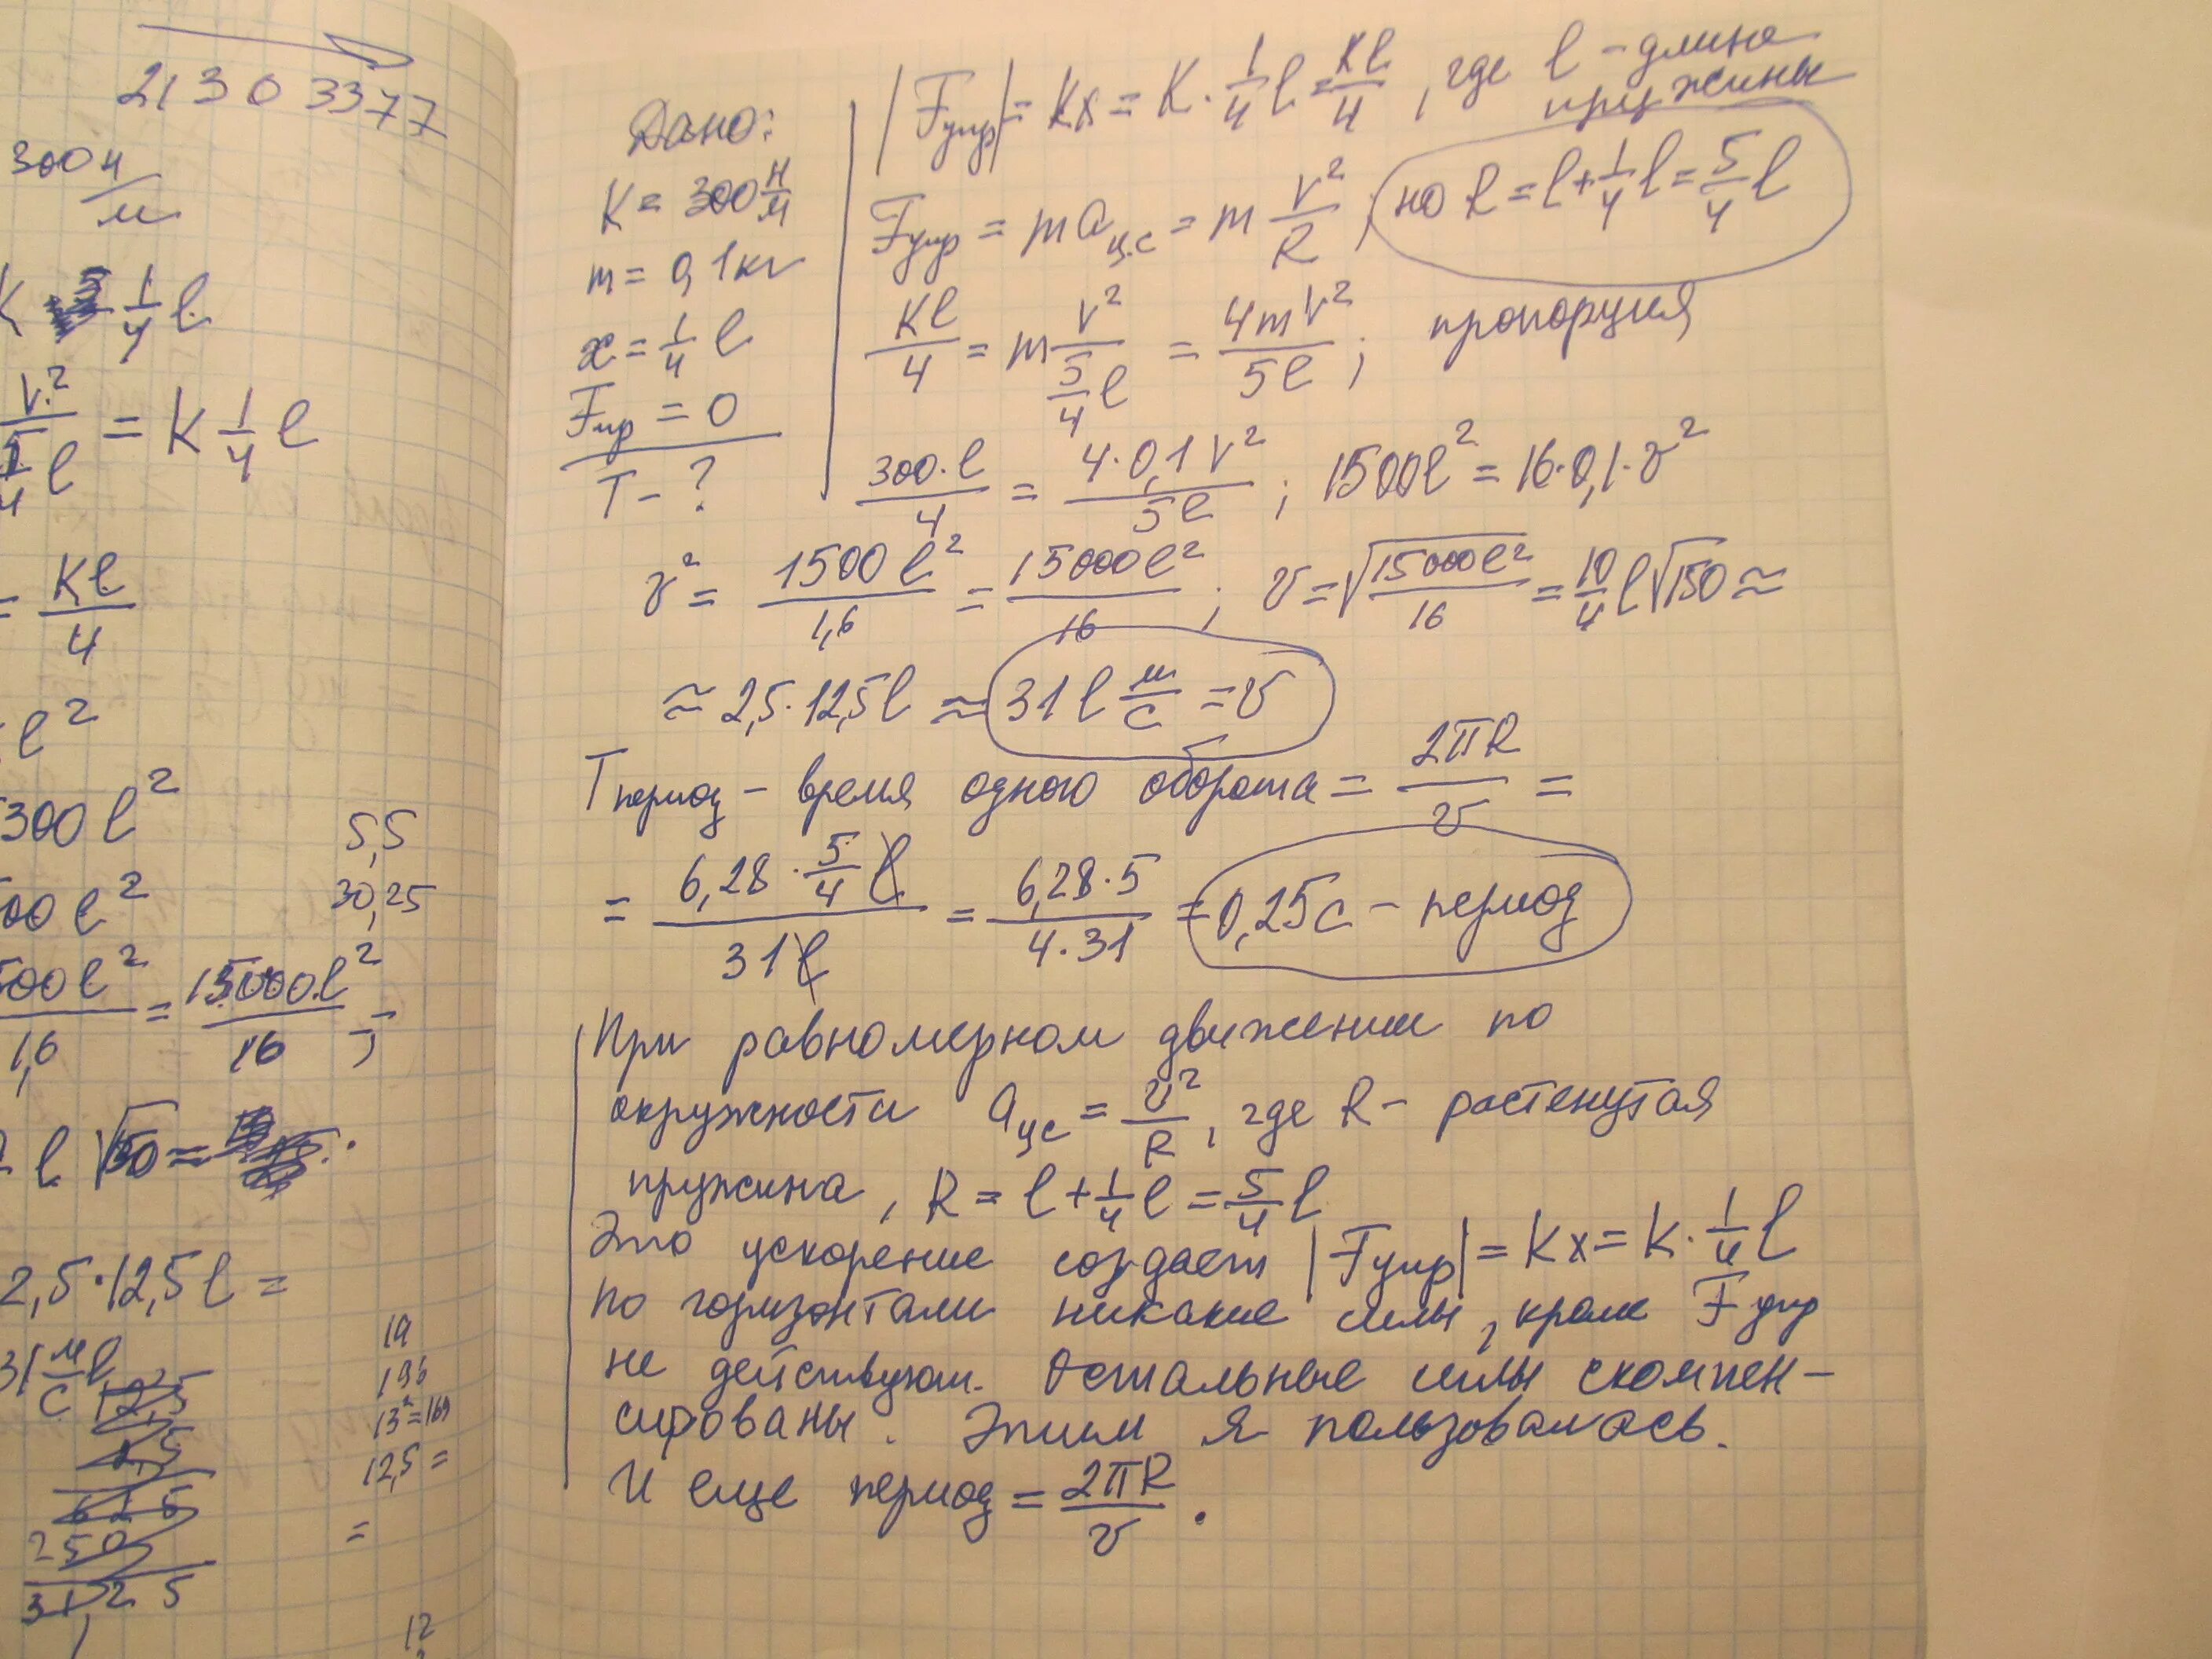 21303377
300 Н/м
K 1/4 l
v²/(5/4 l) = K 1/4 l
= Kl/4
l²
300 l²
00 l²
500 l²/1,6 = 15000 l²/16 ;
l √150 =
2,5·12,5 l =
31 м/с l
12,5
625
250
31,25
5,5
30,25
19
196
13² = 169
12,5 =
=
12
Дано:
K = 300 Н/м
m = 0,1 кг
x = 1/4 l
Fтр = 0
T - ?
|Fупр| = Kx = K · 1/4 l = Kl/4 , где l - длина
пружины
Fупр = m aц.с = m v²/R ; но R = l + 1/4 l = 5/4 l
Kl/4 = m v²/(5/4 l) = 4mv²/5l ; пропорция
300·l/4 = 4·0,1 v²/5l ; 1500 l² = 16·0,1·v²
v² = 1500 l²/1,6 = 15000 l²/16 ; v = √(15000 l²/16) = 10/4 l √150 ≈
≈ 2,5·12,5 l ≈ 31 l м/с = v
Tпериод - время одного оборота = 2πR/v =
= 6,28 · 5/4 l / 31 l = 6,28·5/4·31 = 0,25 с - период
При равномерном движении по
окружности aцс = v²/R , где R - растенутая
пружина , R = l + 1/4 l = 5/4 l
Это ускорение создает |Fупр| = Kx = K · 1/4 l
по горизонтали никакие силы , кроме Fупр
не действуют. Остальные силы скомпен-
сированы . Этим я пользовалась.
И еще период = 2πR/v .